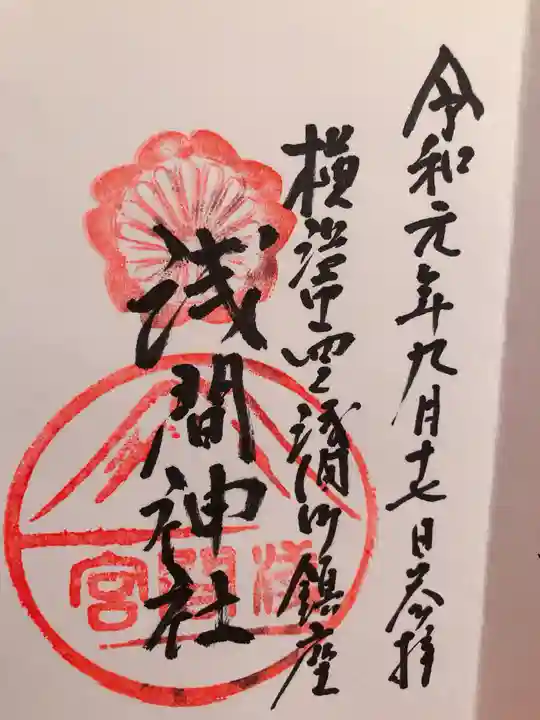 令和元年九月十七日参拝
横浅間鎮座
浅間神社
浅間宮